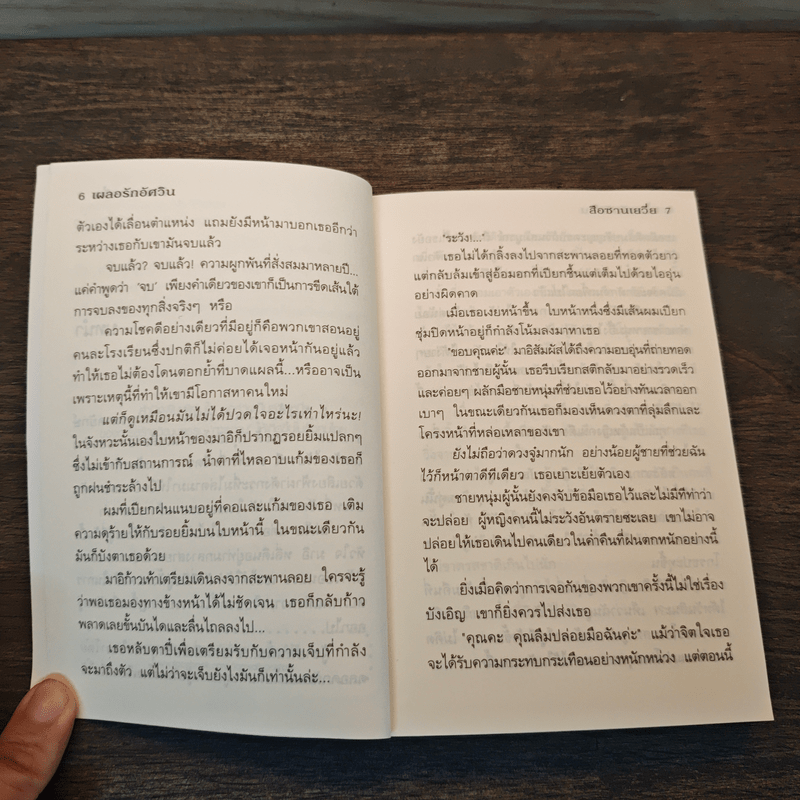 6 เผลอรักอัศวิน
ตัวเองได้เลื่อนตำแหน่ง แถมยังมีหน้ามาบอกเธออีกว่า
ระหว่างเธอกับเขามันจบแล้ว
จบแล้ว? จบแล้ว! ความผูกพันที่สั่งสมมาหลายปี...
แค่คำพูดว่า 'จบ' เพียงคำเดียวของเขาก็เป็นการขีดเส้นใต้
การจบลงของทุกสิ่งจริงๆ หรือ
ความโชคดีอย่างเดียวที่มีอยู่ก็คือพวกเขาสอนอยู่
คนละโรงเรียนซึ่งปกติก็ไม่ค่อยได้เจอหน้ากันอยู่แล้ว
ทำให้เธอไม่ต้องโดนตอกย้ำที่บาดแผลนี้...หรืออาจเป็น
เพราะเหตุนี้ที่ทำให้เขามีโอกาสหาคนใหม่
แต่ก็ดูเหมือนมันไม่ได้ปวดใจอะไรเท่าไหร่นะ!
ในจังหวะนั้นเองใบหน้าของมาอิก็ปรากฏรอยยิ้มแปลกๆ
ซึ่งไม่เข้ากับสถานการณ์ น้ำตาที่ไหลอาบแก้มของเธอก็
ถูกฝนชำระล้างไป
ผมที่เปียกฝนแนบอยู่ที่คอและแก้มของเธอ เติม
ความดุร้ายให้กับรอยยิ้มบนใบหน้านี้ ในขณะเดียวกัน
มันก็บังตาเธอด้วย
มาอิก้าวเท้าเตรียมเดินลงจากสะพานลอย ใครจะรู้
ว่าพอเธอมองทางข้างหน้าได้ไม่ชัดเจน เธอก็กลับก้าว
พลาดเลยขั้นบันไดและลื่นไถลลงไป...
เธอหลับตาปี๋เพื่อเตรียมรับกับความเจ็บที่กำลัง
จะมาถึงตัว แต่ไม่ว่าจะเจ็บยังไงมันก็เท่านั้นล่ะ...
สือซานเยวี่ย 7
"ระวัง!..."
เธอไม่ได้กลิ้งลงไปจากสะพานลอยที่ทอดตัวยาว
แต่กลับล้มเข้าสู่อ้อมอกที่เปียกชื้นแต่เต็มไปด้วยไออุ่น
อย่างผิดคาด
เมื่อเธอเงยหน้าขึ้น ใบหน้าหนึ่งซึ่งมีเส้นผมเปียก
ชุ่มปิดหน้าอยู่ก็กำลังโน้มลงมาหาเธอ
"ขอบคุณค่ะ" มาอิสัมผัสได้ถึงความอบอุ่นที่ถ่ายทอด
ออกมาจากชายผู้นั้น เธอรีบเรียกสติกลับมาอย่างรวดเร็ว
และค่อยๆ ผลักมือชายหนุ่มที่ช่วยเธอไว้อย่างทันเวลาออก
เบาๆ ในขณะเดียวกันเธอก็มองเห็นดวงตาที่ลุ่มลึกและ
โครงหน้าที่หล่อเหลาของเขา
ยังไม่ถือว่าดวงจู๋มากนัก อย่างน้อยผู้ชายที่ช่วยฉัน
ไว้ก็หน้าตาดีทีเดียว เธอเยาะเย้ยตัวเอง
ชายหนุ่มผู้นั้นยังคงจับข้อมือเธอไว้และไม่มีทีท่าว่า
จะปล่อย ผู้หญิงคนนี้ไม่ระวังอันตรายซะเลย เขาไม่อาจ
ปล่อยให้เธอเดินไปคนเดียวในค่ำคืนที่ฝนตกหนักอย่างนี้
ได้
ยิ่งเมื่อคิดว่าการเจอกันของพวกเขาครั้งนี้ไม่ใช่เรื่อง
บังเอิญ เขาก็ยิ่งควรไปส่งเธอ
"คุณคะ คุณลืมปล่อยมือฉันค่ะ" แม้ว่าจิตใจเธอ
จะได้รับความกระทบกระเทือนอย่างหนักหน่วง แต่ตอนนี้